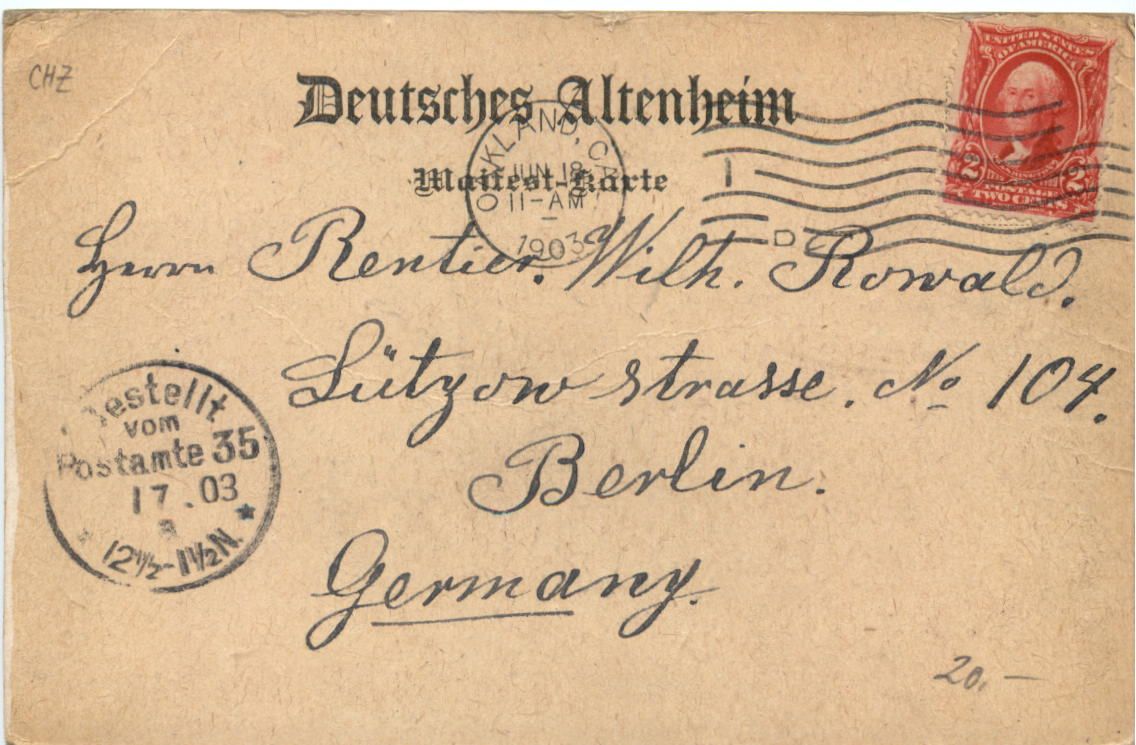 CHZ
Deutsches Altenheim
Maifest-Karte
OAKLAND, CAL.
JUN 18
11-AM
1903
1
D
UNITED STATES
OF AMERICA
2 2
POSTAGE
TWO CENTS
Herrn Rentier. Wilh. Rowald.
Lützow strasse. No 104.
Berlin.
Germany.
Bestellt
vom
Postamte 35
17.03
12 1/2-1 1/2 N.
20,-